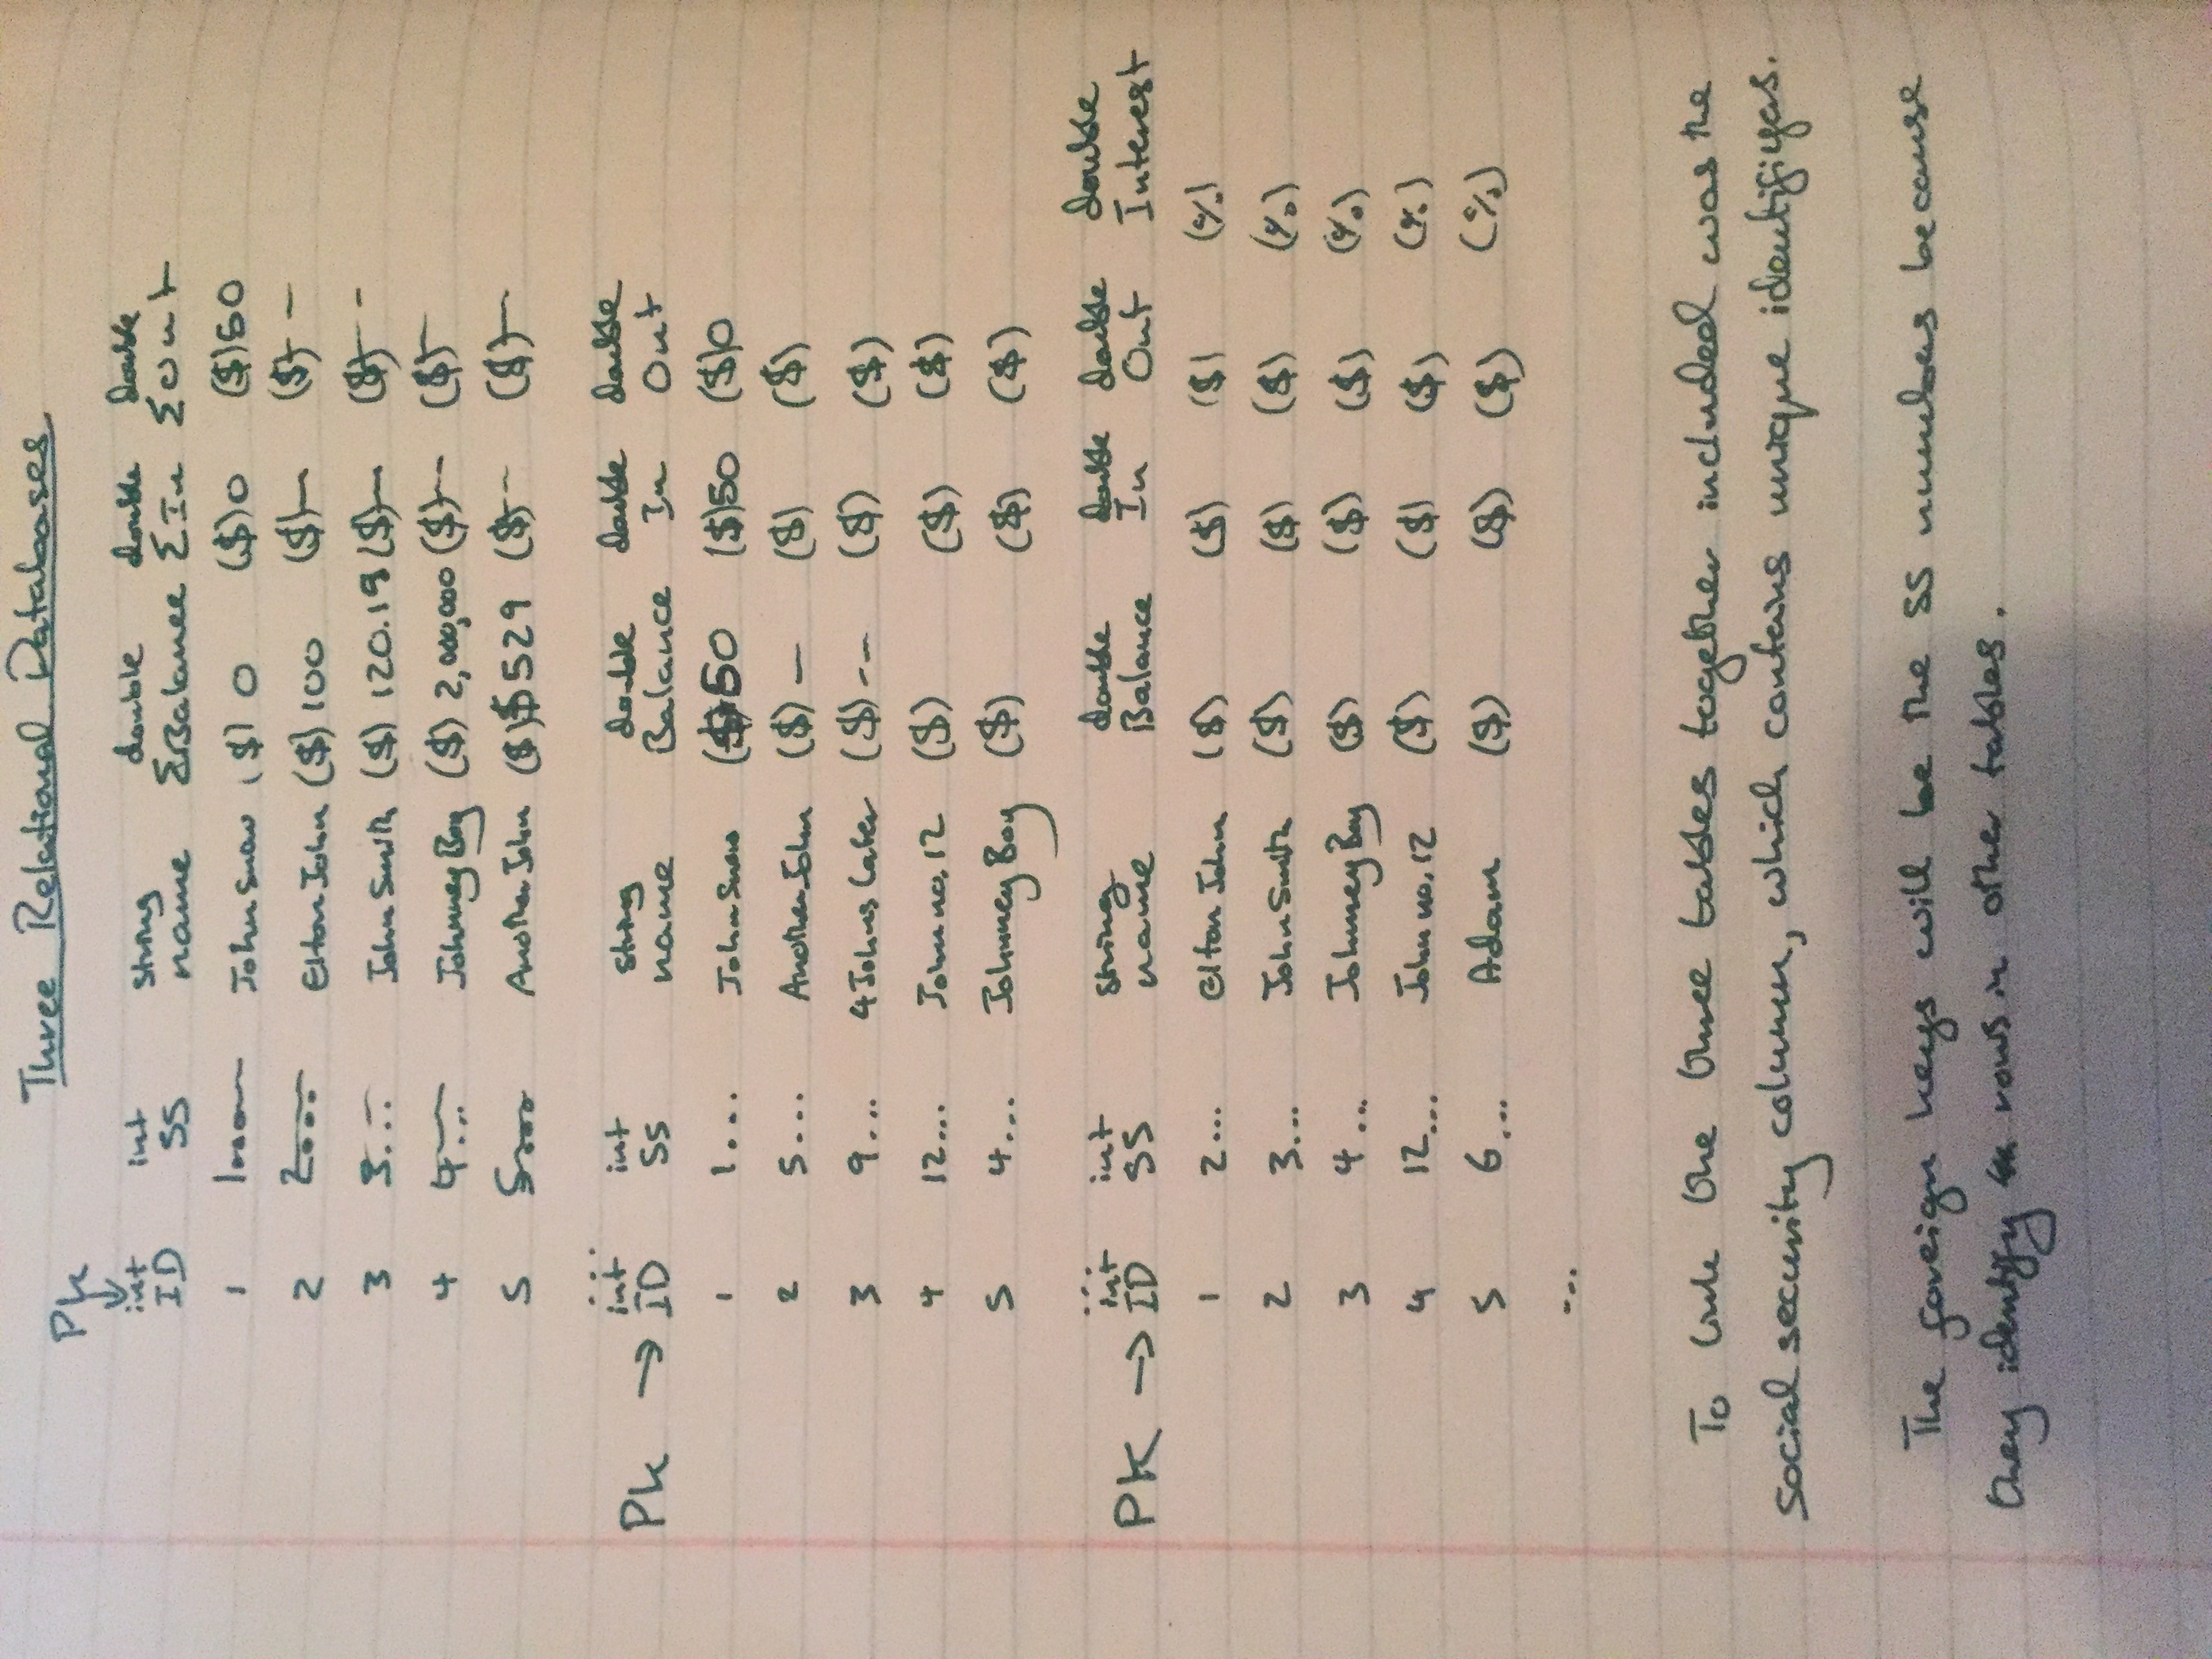 Three Relational Databases
Pk
int int string double double double
ID SS name ΣBalance ΣIn ΣOut
1 1 John Snow ($) 0 ($) 0 ($) 50
2 2.... Elton John ($) 100 ($) — ($) -- 
3 3... John Smith ($) 120.19 ($) — ($) --
4 4... Johnney Boy ($) 2,000,000 ($) -- ($) —
5 5 Another John ($) $529 ($) -- ($) —
...
int int string double double double
Pk → ID SS name Balance In Out
1 1... John Snow ($) 50 ($) 50 ($) 0
2 5... Another John ($) — ($) ($)
3 9... 4 Johns Later ($) -- ($) ($)
4 12... John no. 12 ($) ($) ($)
5 4... Johnney Boy ($) ($) ($)
...
int int string double double double double
PK → ID SS name Balance In Out Interest
1 2... Elton John ($) ($) ($) (%)
2 3... John Smith ($) ($) ($) (%)
3 4... Johnney Boy ($) ($) ($) (%)
4 12... John no. 12 ($) ($) ($) (%)
5 6... Adam ($) ($) ($) (%)
...
To link the three tables together included was the
social security column, which contains unique identifiyas.
The foreign keys will be the SS numbers because
they identify rows in other tables.